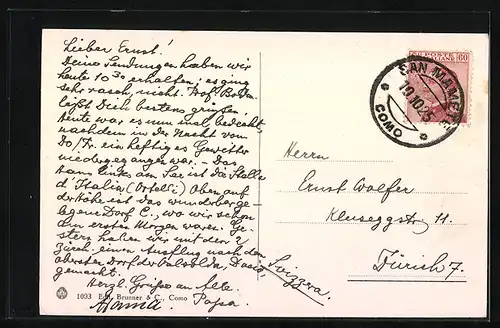 Lieber Ernst!
Deine Sendungen haben wir
heute 10 30 erhalten; es ging
sehr rasch, nicht. Prof.
läßt Dich bestens grüßen.
Heute war es nun mal bedeckt,
nachdem in der Nacht vom
Do/Fr. ein heftiges Gewitter
niedergegangen war. Das
Haus links am See ist die Stella
d'Italia (Ortelli) Oben auf
der Höhe ist das wunderbar ge-
legene Dorf C., wo wir schon
am ersten Morgen waren. Ge-
stern haben wir mit den 2
Zürch. einen Ausflug nach dem
obersten Dorf der Valsolda, Dasio
gemacht.
Herzl. Grüße an Alle.
Mama. Papa
1093 Ed. Brunner & C., Como
POSTE ITALIANE 60
SAN MAMETE
19.10.25
COMO
Herrn
Ernst
Kluseggstr. 11.
Zürich 7.
Svizzra.